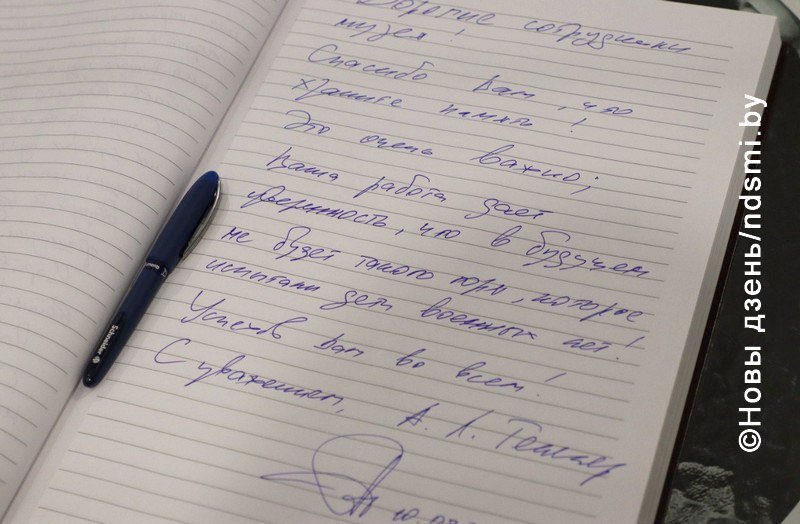 Дорогие сотрудники
музея!
Спасибо Вам, что
храните память!
Это очень важно;
Ваша работа дает
уверенность, что в будущем
не будет такого горя, которое
испытали дети военных лет!
Успехов Вам во всем!
С уважением, А. Л.
Schneider
©Новы дзень/ndsmi.by